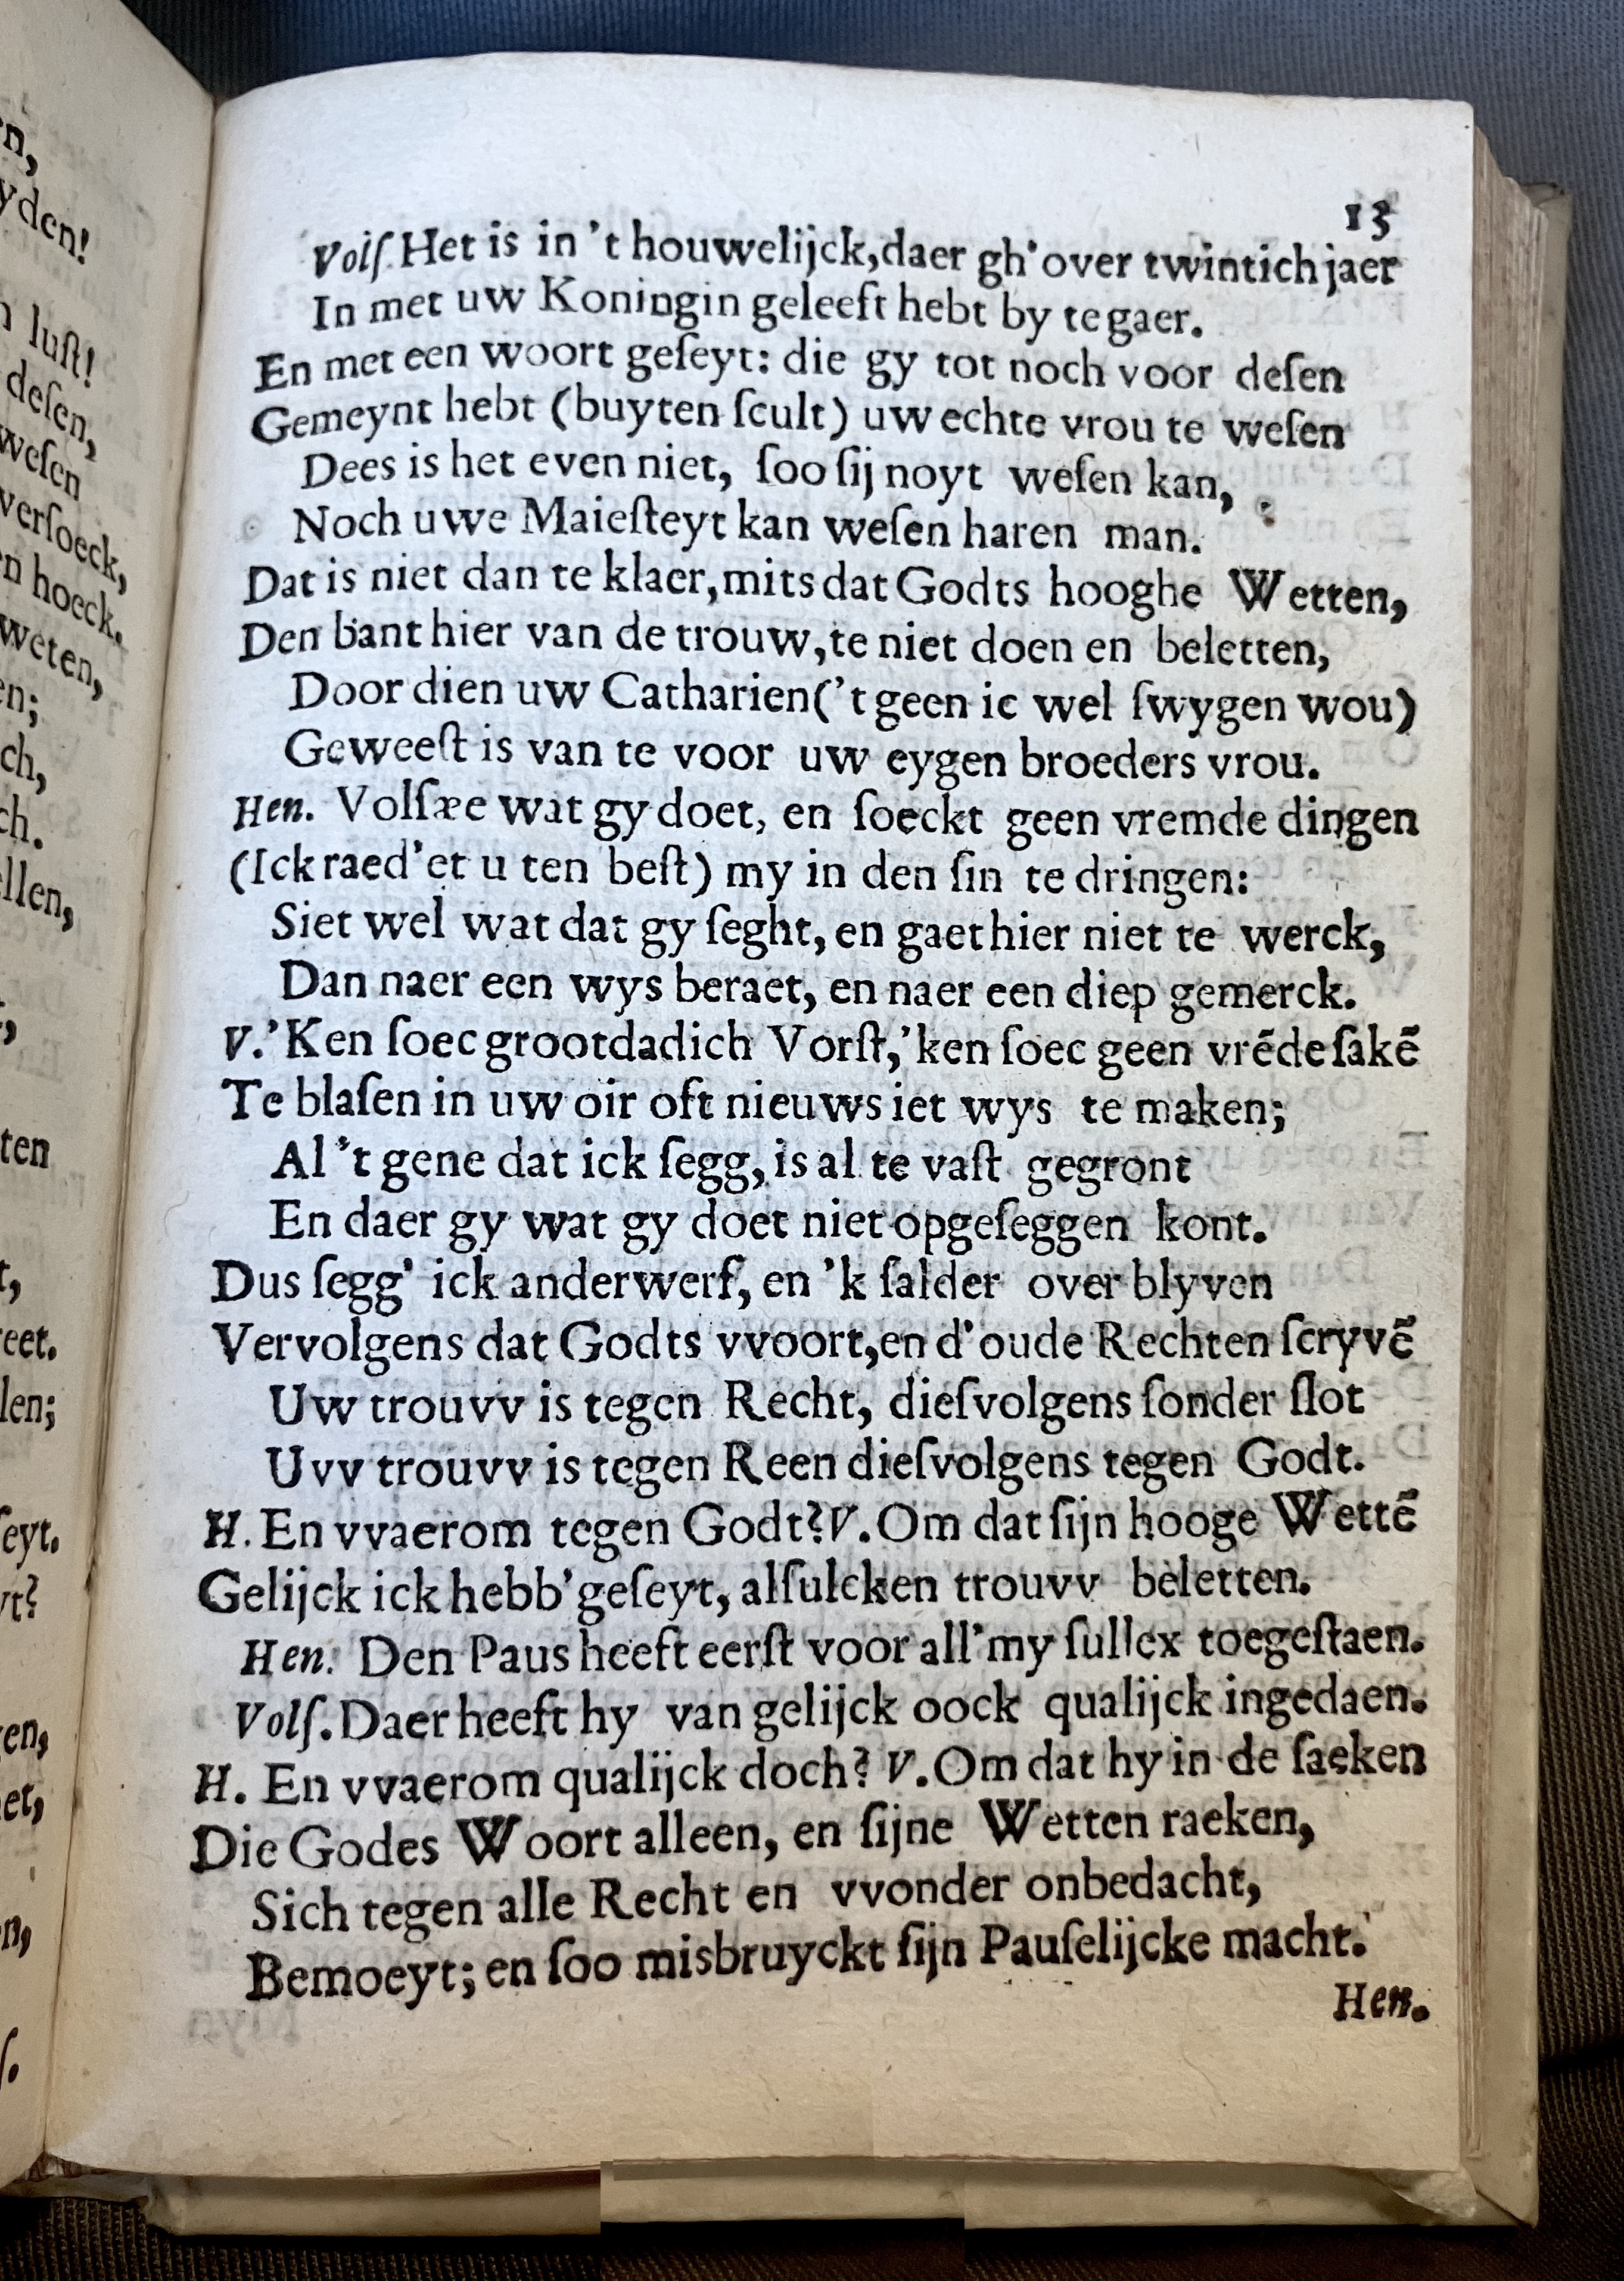 13
Volſ. Het is in 't houwelijck, daer gh' over twintich jaer
In met uw Koningin geleeft hebt by te gaer.
En met een woort geſeyt: die gy tot noch voor deſen
Gemeynt hebt (buyten ſcult) uw echte vrou te weſen
Dees is het even niet, ſoo ſij noyt weſen kan,
Noch uwe Maieſteyt kan weſen haren man.
Dat is niet dan te klaer, mits dat Godts hooghe Wetten,
Den bant hier van de trouw, te niet doen en beletten,
Door dien uw Catharien ('t geen ic wel ſwygen wou)
Geweeſt is van te voor uw eygen broeders vrou.
Hen. Volſæe wat gy doet, en ſoeckt geen vremde dingen
(Ick raed'et u ten beſt) my in den ſin te dringen:
Siet wel wat dat gy ſeght, en gaet hier niet te werck,
Dan naer een wys beraet, en naer een diep gemerck.
V. 'Ken ſoec grootdadich Vorſt, 'ken ſoec geen vrẽde ſakẽ
Te blaſen in uw oir oft nieuws iet wys te maken;
Al 't gene dat ick ſegg, is al te vaſt gegront
En daer gy wat gy doet niet opgeſeggen kont.
Dus ſegg' ick anderwerf, en 'k ſalder over blyven
Vervolgens dat Godts vvoort, en d'oude Rechten ſcryvẽ
Uw trouvv is tegen Recht, dieſvolgens ſonder ſlot
Uvv trouvv is tegen Reen dieſvolgens tegen Godt.
H. En vvaerom tegen Godt? V. Om dat ſijn hooge Wettẽ
Gelijck ick hebb' geſeyt, alſulcken trouvv beletten.
Hen. Den Paus heeft eerſt voor all' my ſullex toegeſtaen.
Volſ. Daer heeft hy van gelijck oock qualijck ingedaen.
H. En vvaerom qualijck doch? V. Om dat hy in de ſaeken
Die Godes Woort alleen, en ſijne Wetten raeken,
Sich tegen alle Recht en vvonder onbedacht,
Bemoeyt; en ſoo misbruyckt ſijn Pauſelijcke macht.
Hen.